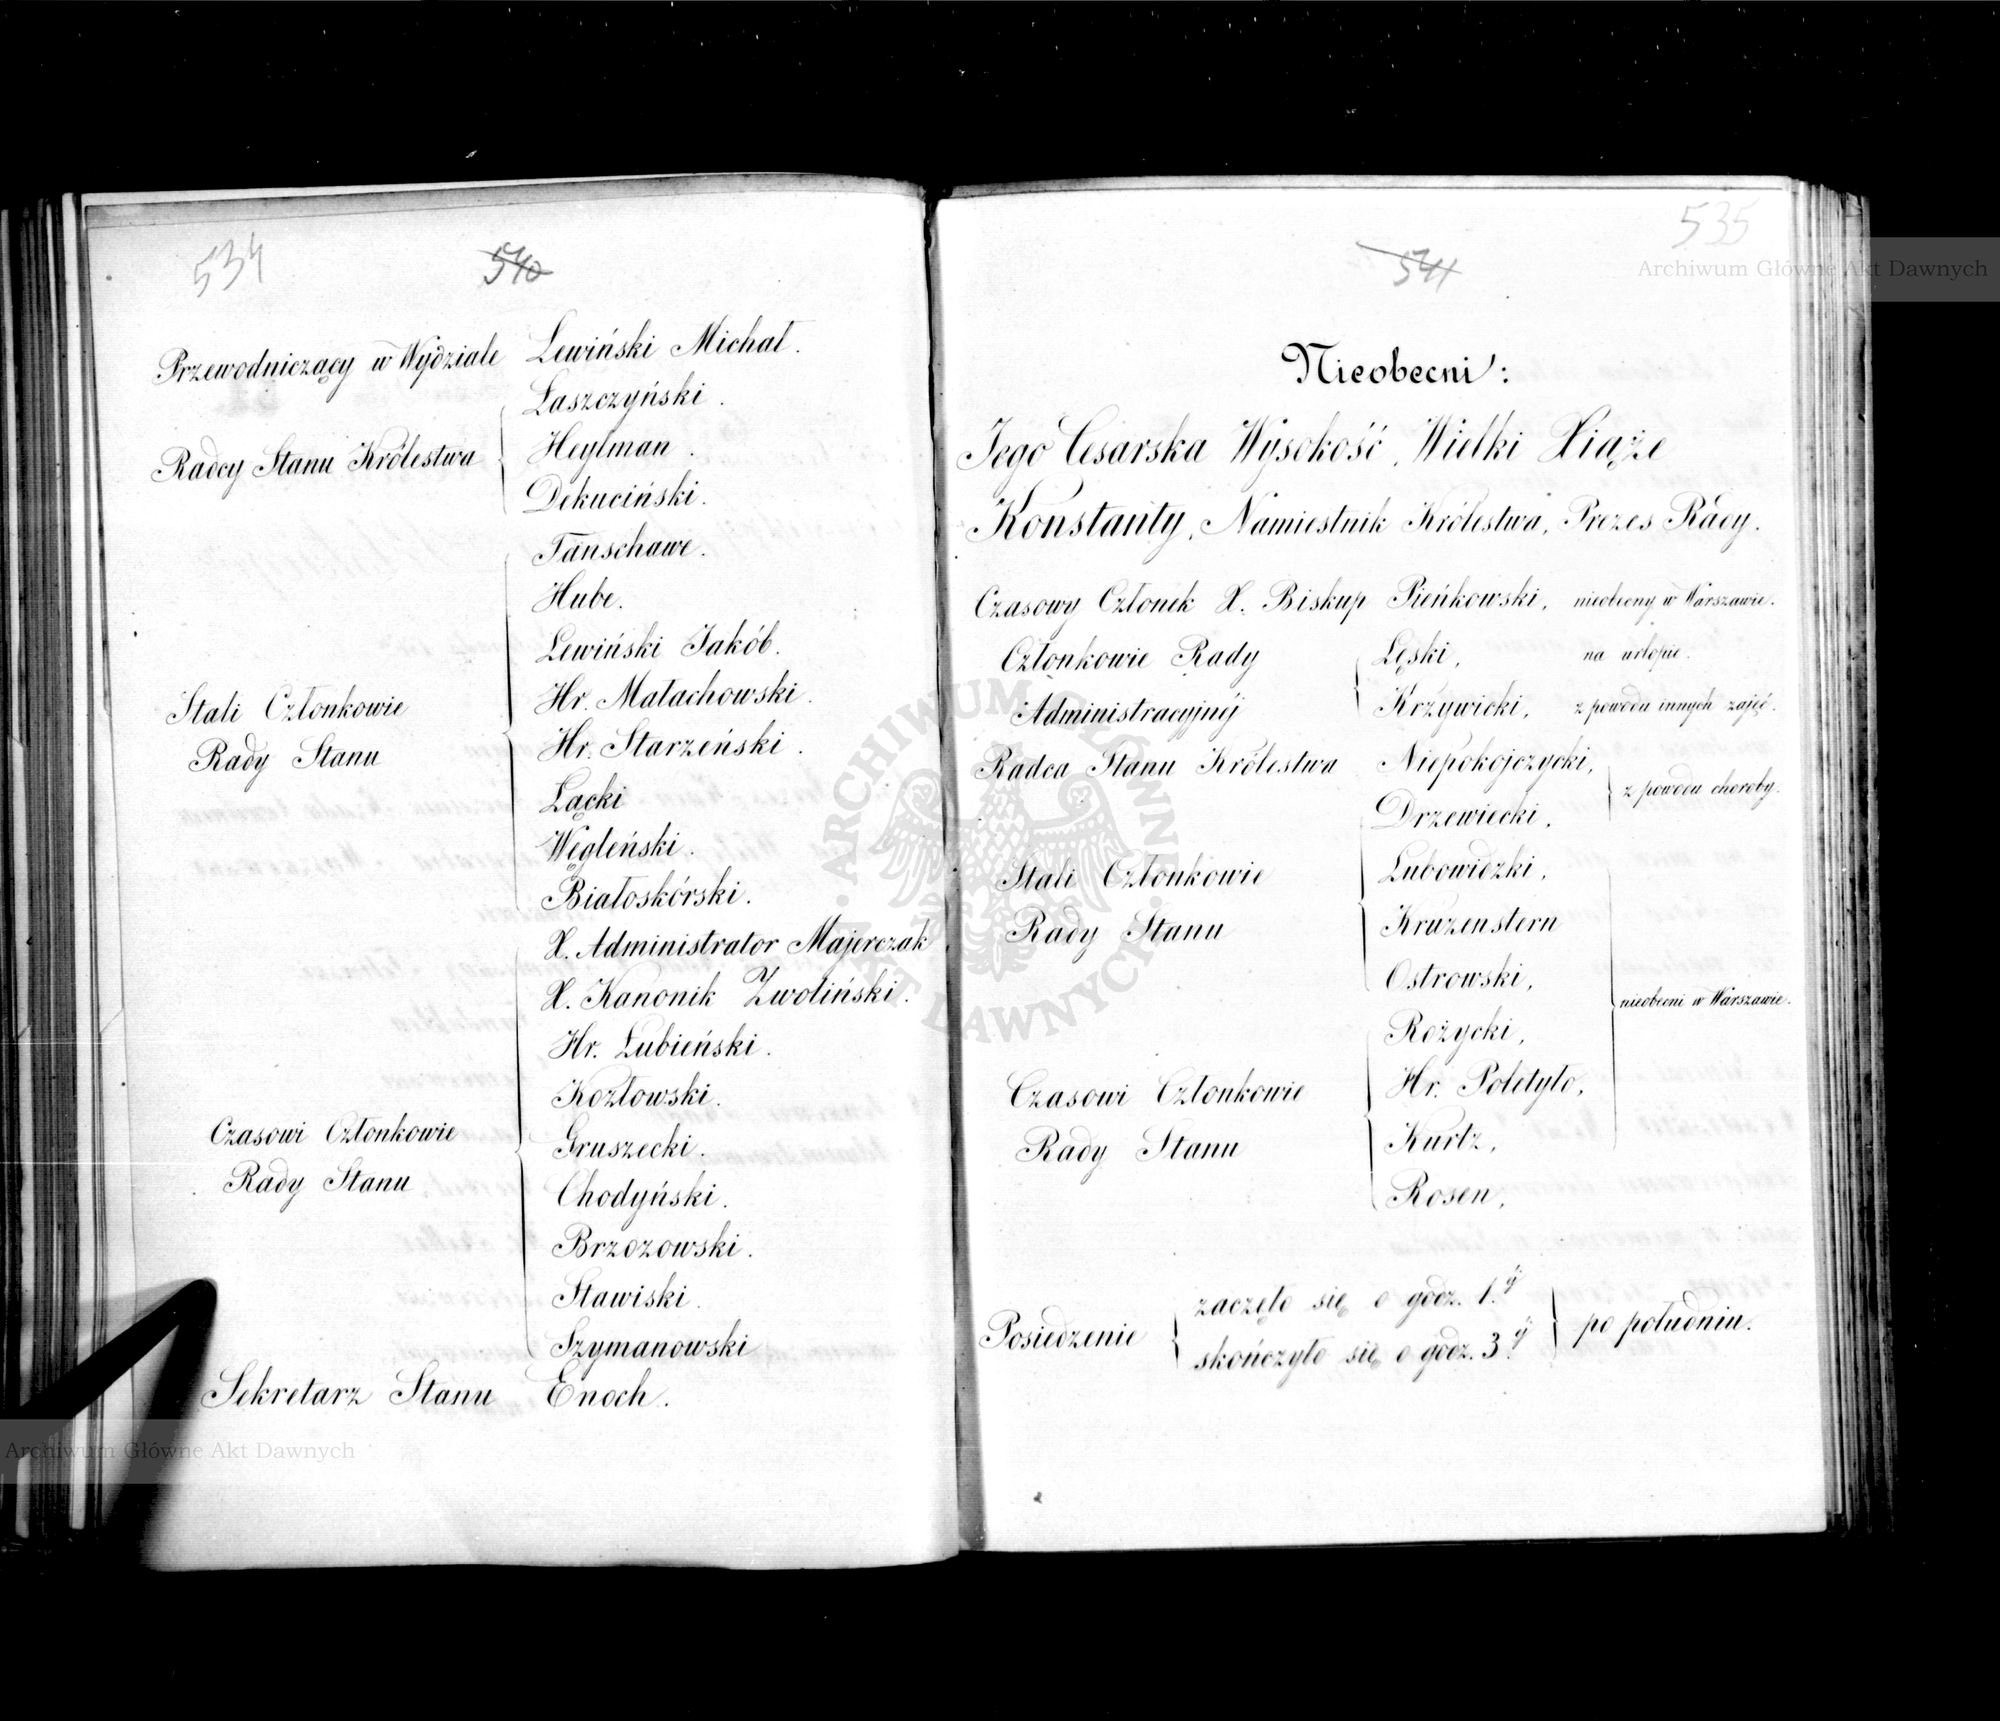 534
540
Przewodniczący w Wydziale Lewiński Michał.
Łaszczyński.
Radcy Stanu Królestwa Heylman.
Dekuciński.
Fanschawe.
Hube.
Lewiński Jakób.
Hr. Małachowski.
Stali Członkowie
Rady Stanu Hr. Starzeński.
Łącki
Węgleński.
Białoskórski.
X. Administrator Majerczak
X. Kanonik Zwoliński.
Hr. Łubieński.
Kozłowski.
Czasowi Członkowie Gruszecki.
Rady Stanu Chodyński.
Brzozowski.
Stawiski.
Szymanowski
Sekretarz Stanu Enoch.
535
541
Nieobecni:
Jego Cesarska Wysokość, Wielki Xiąże
Konstanty, Namiestnik Królestwa, Prezes Rady.
Czasowy Członek X. Biskup Pieńkowski, nieobecny w Warszawie.
Członkowie Rady Łęski, na urlopie.
Administracyjnéj Krzywicki, z powodu innych zajęć.
Radca Stanu Królestwa Niepokojczycki,
z powodu choroby.
Drzewiecki,
Stali Członkowie Lubowidzki,
Rady Stanu Kruzenstern
Ostrowski,
nieobecni w Warszawie.
Rożycki,
Czasowi Członkowie Hr. Poletyło,
Rady Stanu Kurtz,
Rosen,
Posiedzenie zaczęło się o godz. 1.éj
skończyło się o godz. 3.éj po południu.
Archiwum Główne Akt Dawnych
ARCHIWUM GŁÓWNE AKT DAWNYCH
Archiwum Główne Akt Dawnych